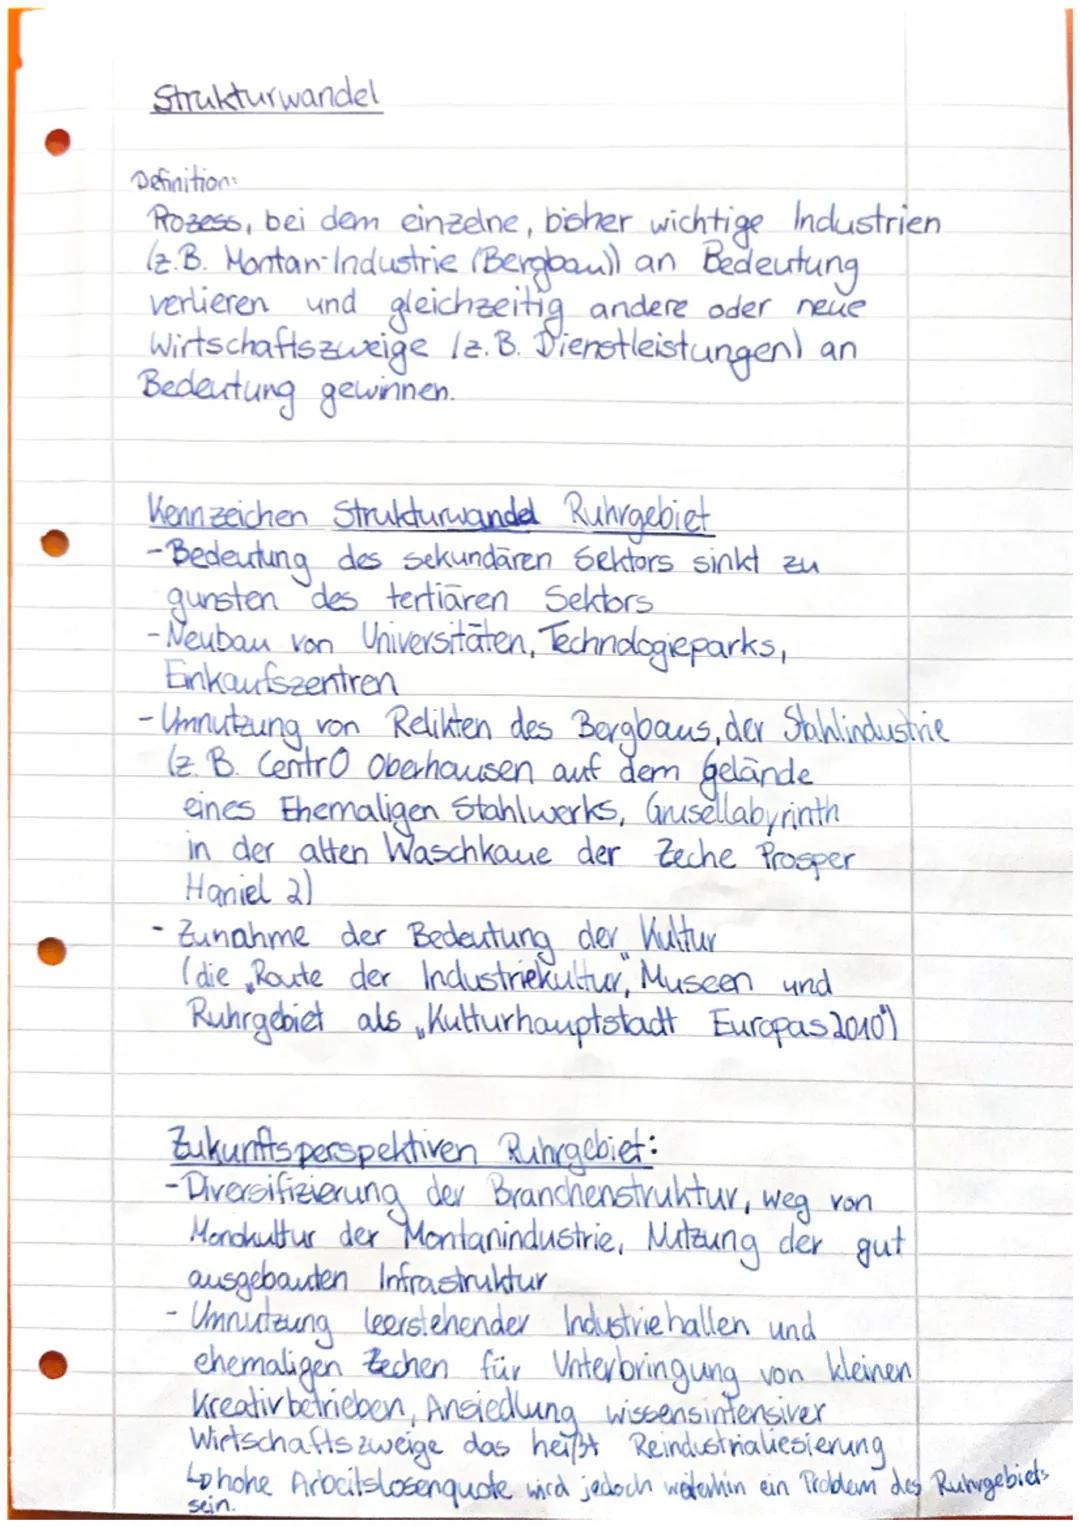 Strukturwandel
Definition:
Prozess, bei dem einzelne, bisher wichtige Industrien
(z.B. Montan-Industrie (Bergbau)) an Bedeutung
verlieren und gleichzeitig andere oder neue
Wirtschaftszweige (z.B. Dienstleistungen) an
Bedeutung gewinnen.
Kennzeichen Strukturwandel Ruhrgebiet
- Bedeutung des sekundären Sektors sinkt zu
gunsten des tertiären Sektors
- Neubau von Universitäten, Technologieparks,
Einkaufszentren
- Umnutzung von Relikten des Bergbaus, der Stahlindustrie
(z.B. CentrO Oberhausen auf dem Gelände
eines Ehemaligen Stahlwerks, Grusellabyrinth
in der alten Waschkaue der Zeche Prosper
Haniel 2)
- Zunahme der Bedeutung der Kultur
(die „Route der Industriekultur", Museen und
Ruhrgebiet als „Kulturhauptstadt Europas 2010")
Zukunftsperspektiven Ruhrgebiet:
- Diversifizierung der Branchenstruktur, weg von
Monokultur der Montanindustrie, Nutzung der gut
ausgebauten Infrastruktur
- Umnutzung leerstehender Industriehallen und
ehemaligen Zechen für Unterbringung von kleinen
Kreativbetrieben, Ansiedlung wissensintensiver
Wirtschaftszweige das heißt Reindustrialiesierung
↳ hohe Arbeitslosenquote wird jedoch weiterhin ein Problem des Ruhrgebiets
sein.